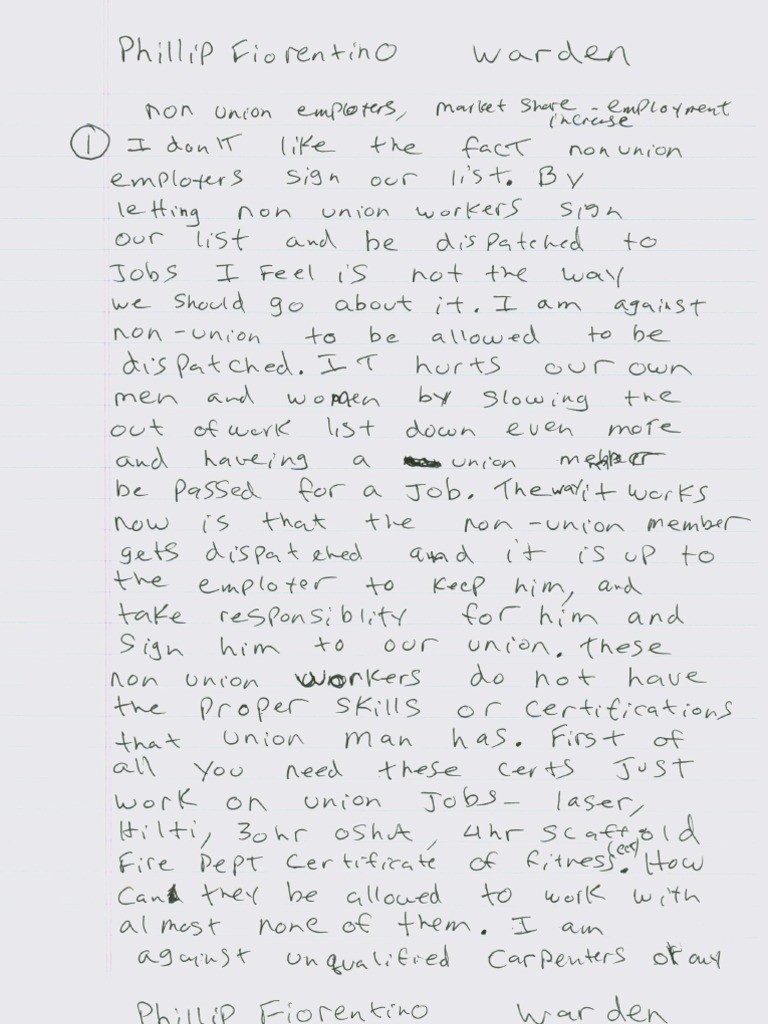 Phillip Fiorentino Warden
non union employers, market share - employment
increase
① I don't like the fact nonunion
employers sign our list. By
letting non union workers sign
our list and be dispatched to
Jobs I Feel is not the way
we should go about it. I am against
non-union to be allowed to be
dispatched. IT hurts our own
men and women by slowing the
out of work list down even more
and haveing a union member
be passed for a Job. The way it works
now is that the non-union member
gets dispatched and it is up to
the employer to keep him, and
take responsiblity for him and
Sign him to our union. These
non union workers do not have
the proper skills or certifications
that union man has. First of
all you need these certs JUST
work on union Jobs- laser,
Hilti, 30hr OSHA, 4hr scaffold
Fire Dept certificate of fitness. (cof) How
Can they be allowed to work with
almost none of them. I am
against unqualified carpenters or any
Phillip Fiorentino Warden